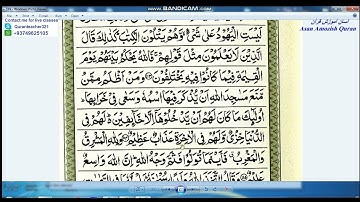 WWW.BANDICAM.COM
Contact me for live classes
Quranteacher321
+93749825105
آسان آموزش قرآن
Asan Amozish Quran
لَيْسَتِ الْيَهُودُ عَلٰى شَيْءٍ وَّهُمْ يَتْلُوْنَ الْكِتٰبَ كَذٰلِكَ قَالَ
الَّذِيْنَ لَا يَعْلَمُوْنَ مِثْلَ قَوْلِهِمْ فَاللّٰهُ يَحْكُمُ بَيْنَهُمْ يَوْمَ
الْقِيٰمَةِ فِيْمَا كَانُوْا فِيْهِ يَخْتَلِفُوْنَ وَمَنْ اَظْلَمُ مِمَّنْ
مَّنَعَ مَسٰجِدَ اللّٰهِ اَنْ يُّذْكَرَ فِيْهَا اسْمُهٗ وَسَعٰى فِيْ خَرَابِهَا
اُولٰٓئِكَ مَا كَانَ لَهُمْ اَنْ يَّدْخُلُوْهَآ اِلَّا خَآئِفِيْنَ لَهُمْ فِي
الدُّنْيَا خِزْيٌ وَّلَهُمْ فِي الْاٰخِرَةِ عَذَابٌ عَظِيْمٌ وَلِلّٰهِ الْمَشْرِقُ
وَالْمَغْرِبُ فَاَيْنَمَا تُوَلُّوْا فَثَمَّ وَجْهُ اللّٰهِ اِنَّ اللّٰهَ وَاسِعٌ